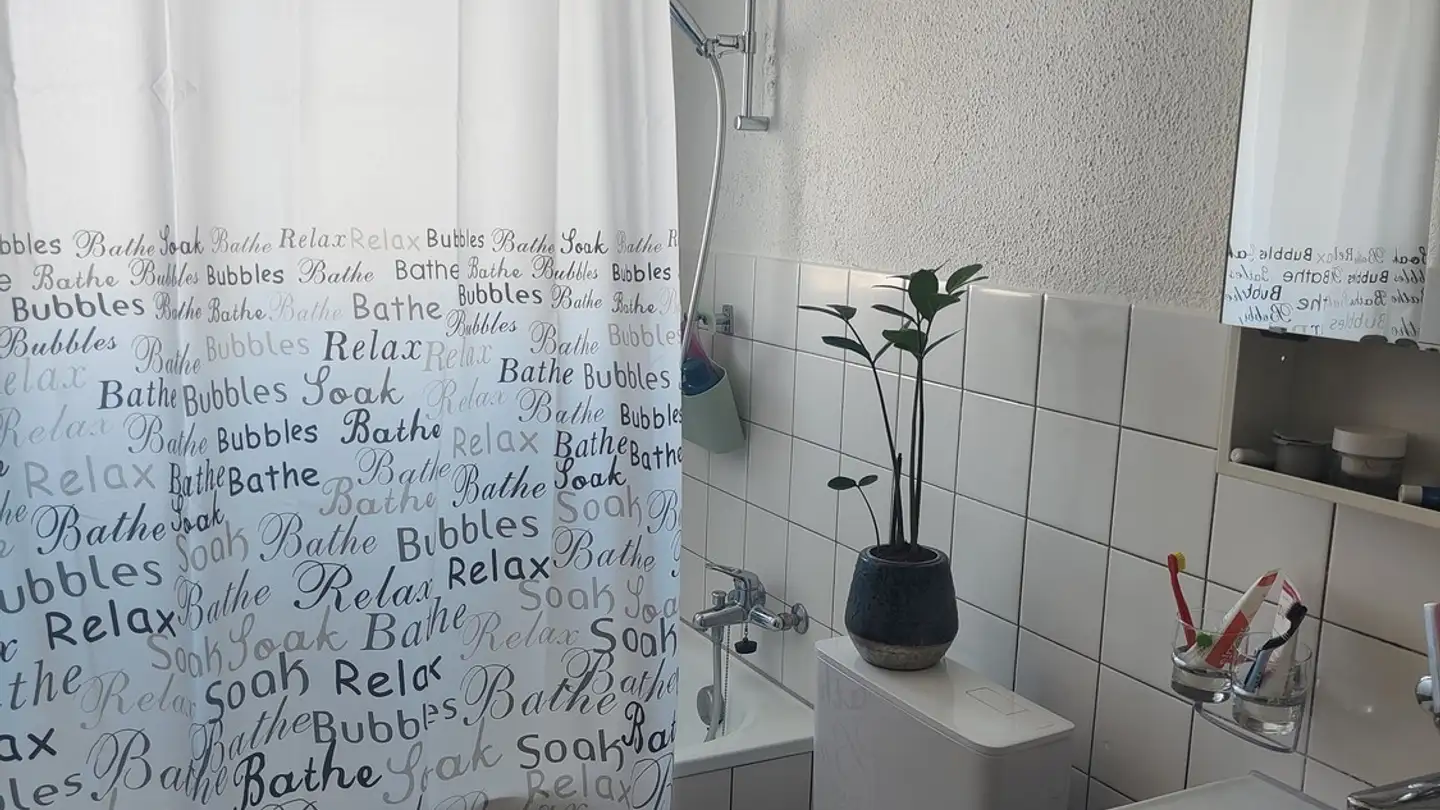 bbles Bathe Soak Bathe Relax Relax Bubbles Bathe Soak Bathe R
e Bathe Bubbles Bubbles Bathe Bathe Bathe Bubbles Bubbles
Bubbles Bathe Bathe Bathe Bathe Bubbles Bathe Bathe
Bubbles Bathe Bubbles Relax Relax Bubbles Bathe Bubbles
elax Bathe Bubbles Soak Relax Bathe Bubbles
Relax Bathe Bubbles Bathe Relax Bathe Bathe Bubbles
Relax Bathe Bathe Bathe Bathe Soak Bathe
he Bathe Soak Bathe Soak
ubbles Soak Bathe Bubbles Bathe
x Relax Bathe Relax Relax Soak Soa
the Soak Soak Bathe Relax Soak
Relax Soak Relax Bathe Bathe
ax Bathe Bathe Bubbles Soak Bat
les Bathe Soak Relax